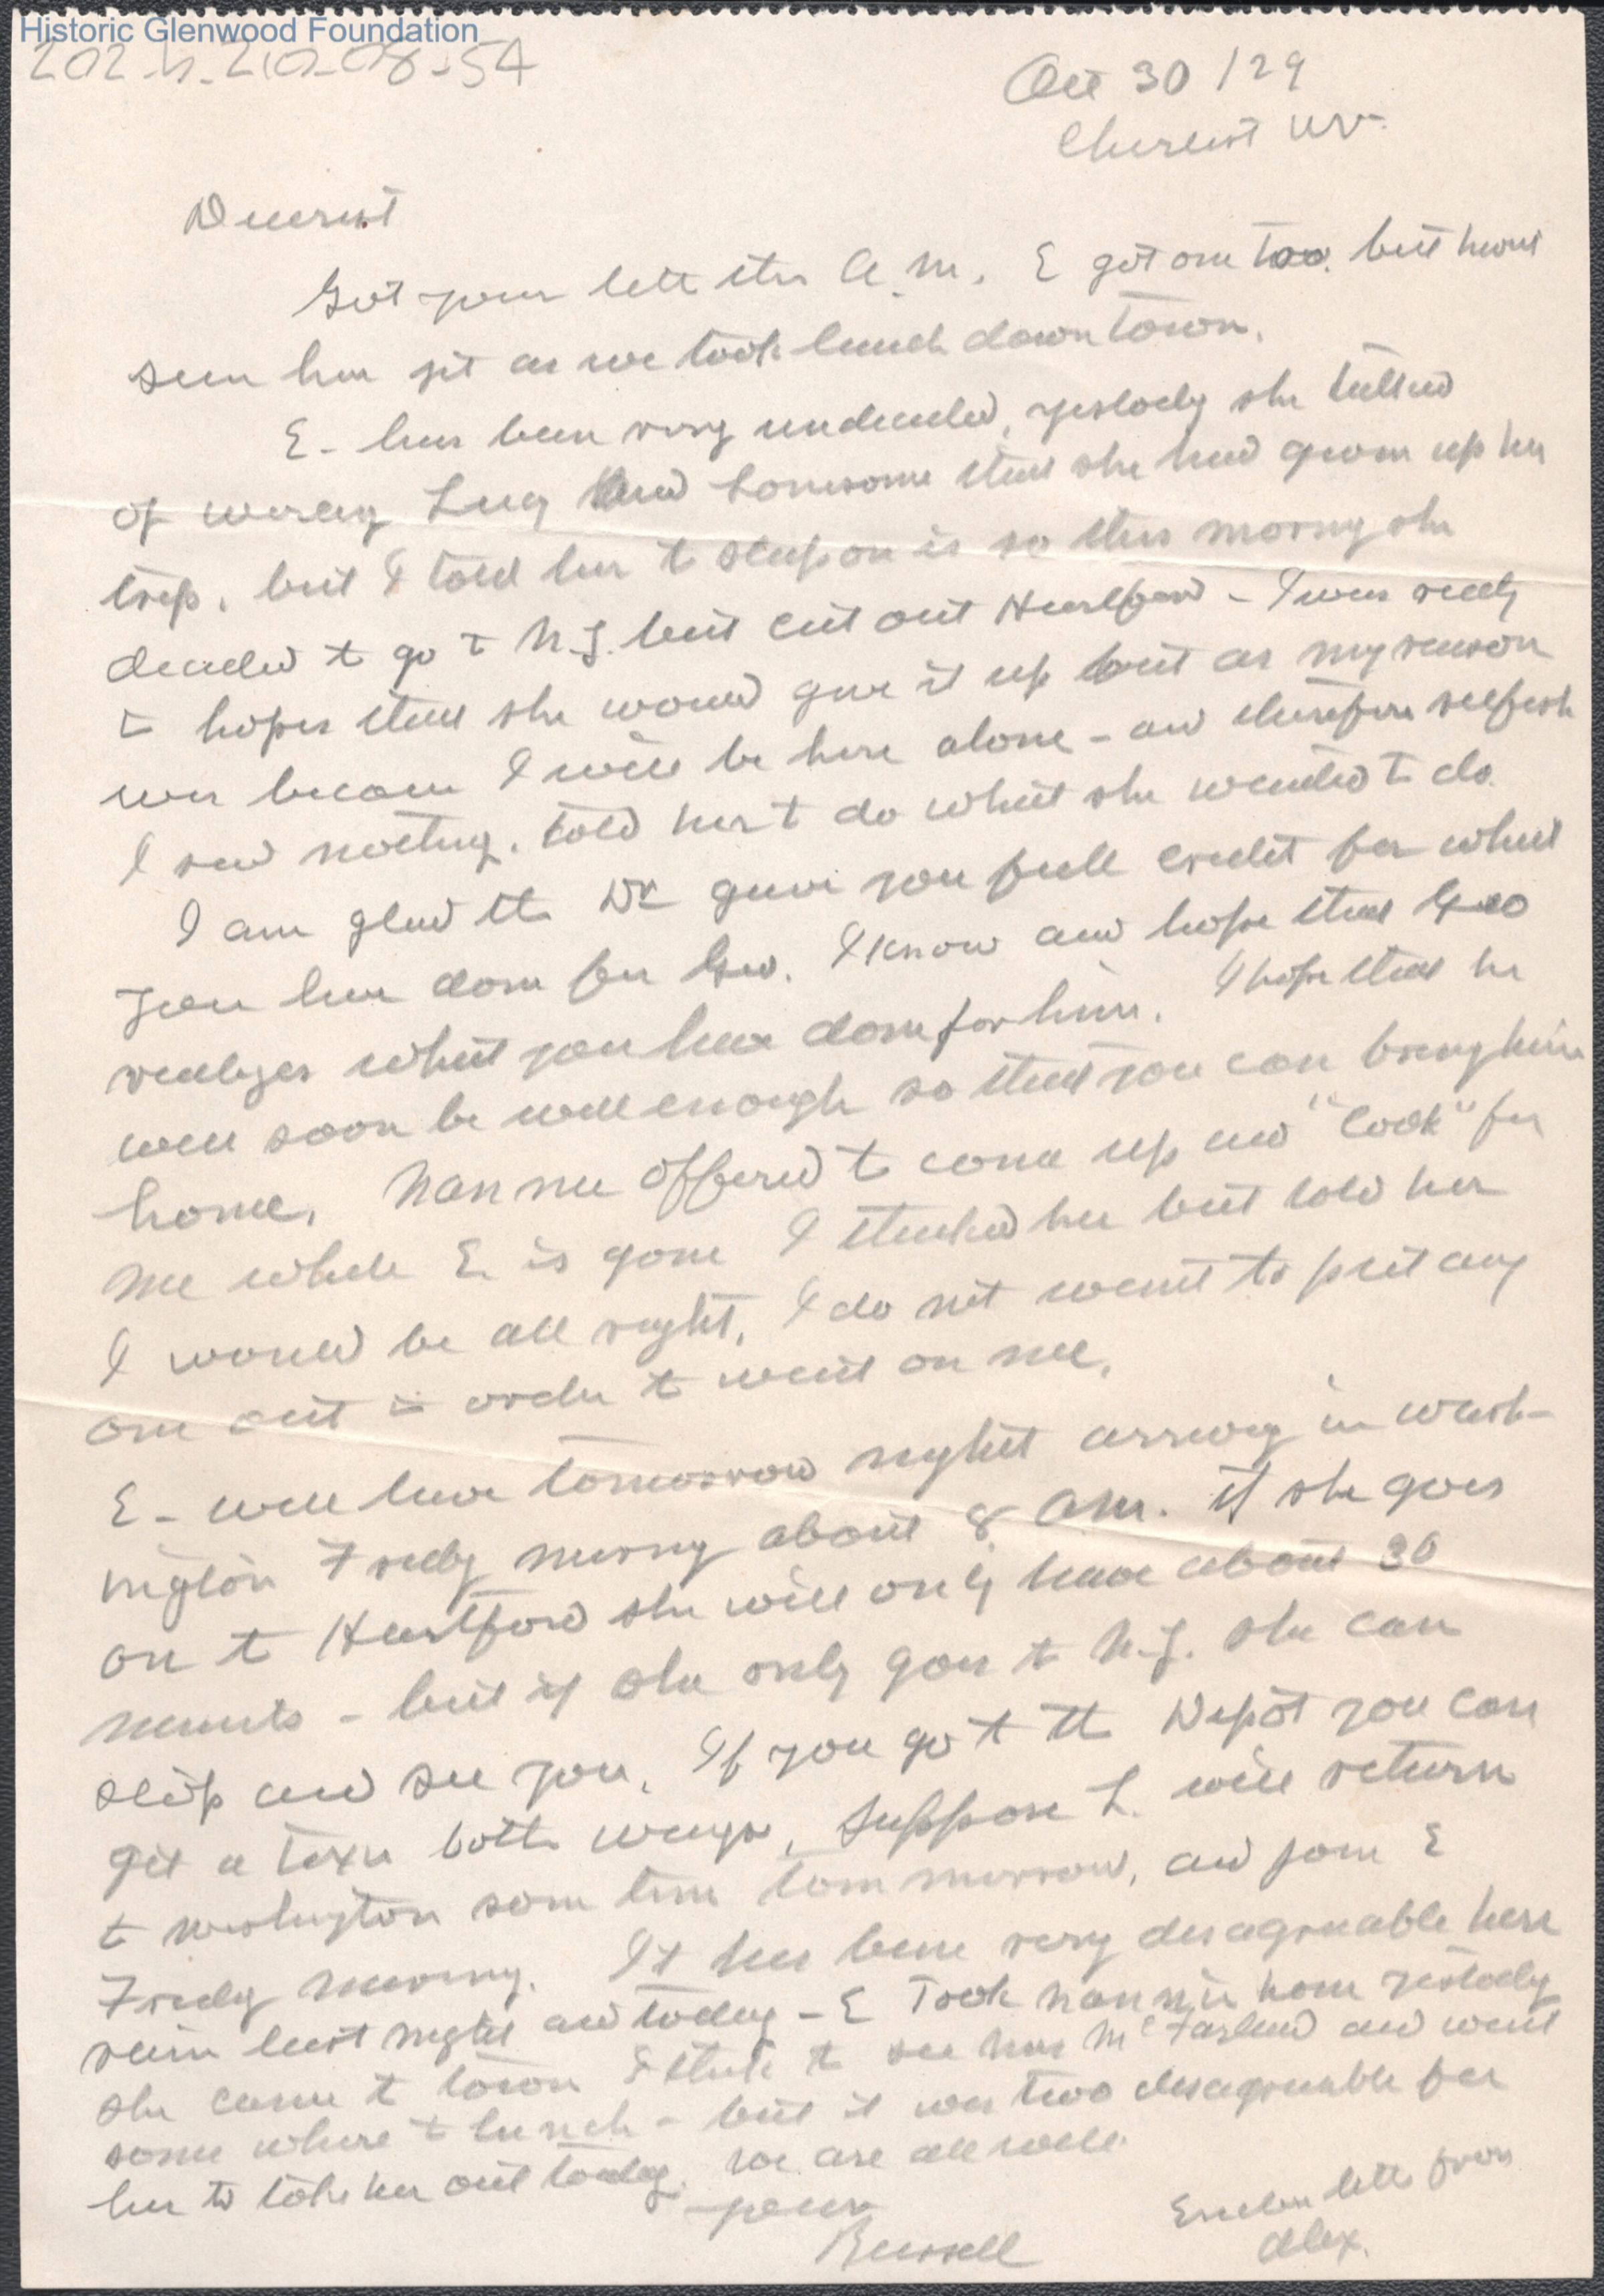 Historic Glenwood Foundation
202-h-210-08-54
Oct 30 / 29
Charlest W.V.
Dearest
Got your lett this A.M. E got one too. but havnt
seen her yet as we took lunch down town.
E - has been very undecided, yestody she talked
of Lucy and lonesome that she had given up her
trip, but I told her to sleep on it so this morng she
decided to go to N.J. but cut out Hartford - I was realy
in hopes that she would give it up but as my reason
was because I will be here alone - and therefore selfish
I said nothing, told her to do what she wanted to do.
I am glad the Dr gave you full credit for what
you have done for Geo. I know and hope that Geo
realizes what you have done for him. I hope that he
will soon be well enough so that you can bring him
home. Nannie offered to come up and "Cook" for
me while E is gone I thanked her but told her
I would be all right, I do not want to put any
one out in order to wait on me.
E - will leave tomorrow night arriving in Wash-
ington Friday morng about 8 A.M. if she goes
on to Hartford she will only have about 30
minuts - but if she only goes to N.J. she can
stop and see you. If you go to the Depot you can
get a taxi both ways, Suppose L. will return
to Washington som time tommorrow, and join E
Friday morning. It has been very disagreable here
rain last night and today - E Took Nannie home yestody
she came to town I think to see Mrs McFarland and went
some where to lunch - but it was two disagreable for
her to take her out today. We are all well.
yours
Russell
Enclose lettr from
Alex.